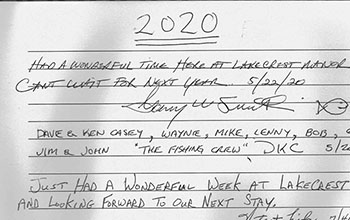 2020
HAD A WONDERFUL TIME HERE AT LAKECREST MANOR
CANT WAIT FOR NEXT YEAR 5/22/20
DAVE & KEN CASEY, WAYNE, MIKE, LENNY, BOB,
JIM & JOHN "THE FISHING CREW" DKC
JUST HAD A WONDERFUL WEEK AT LAKECREST
AND LOOKING FORWARD TO OUR NEXT STAY.